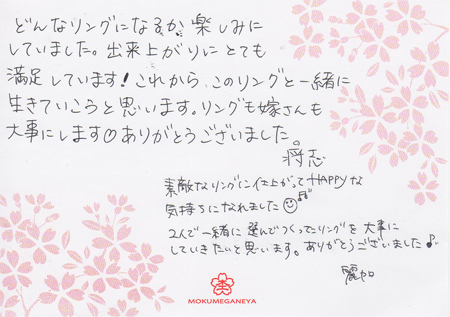 どんなリングになるか、楽しみに
していました。出来上がりにとても
満足しています！これから、このリングと一緒に
生きていこうと思います。リングも嫁さんも
大事にします♡ありがとうございました。
将志
素敵なリングに仕上がってHAPPYな
気持ちになれました☺♫
2人で一緒に選んでつくったリングを大事に
していきたいと思います。ありがとうございました♪
麗加
MOKUMEGANEYA